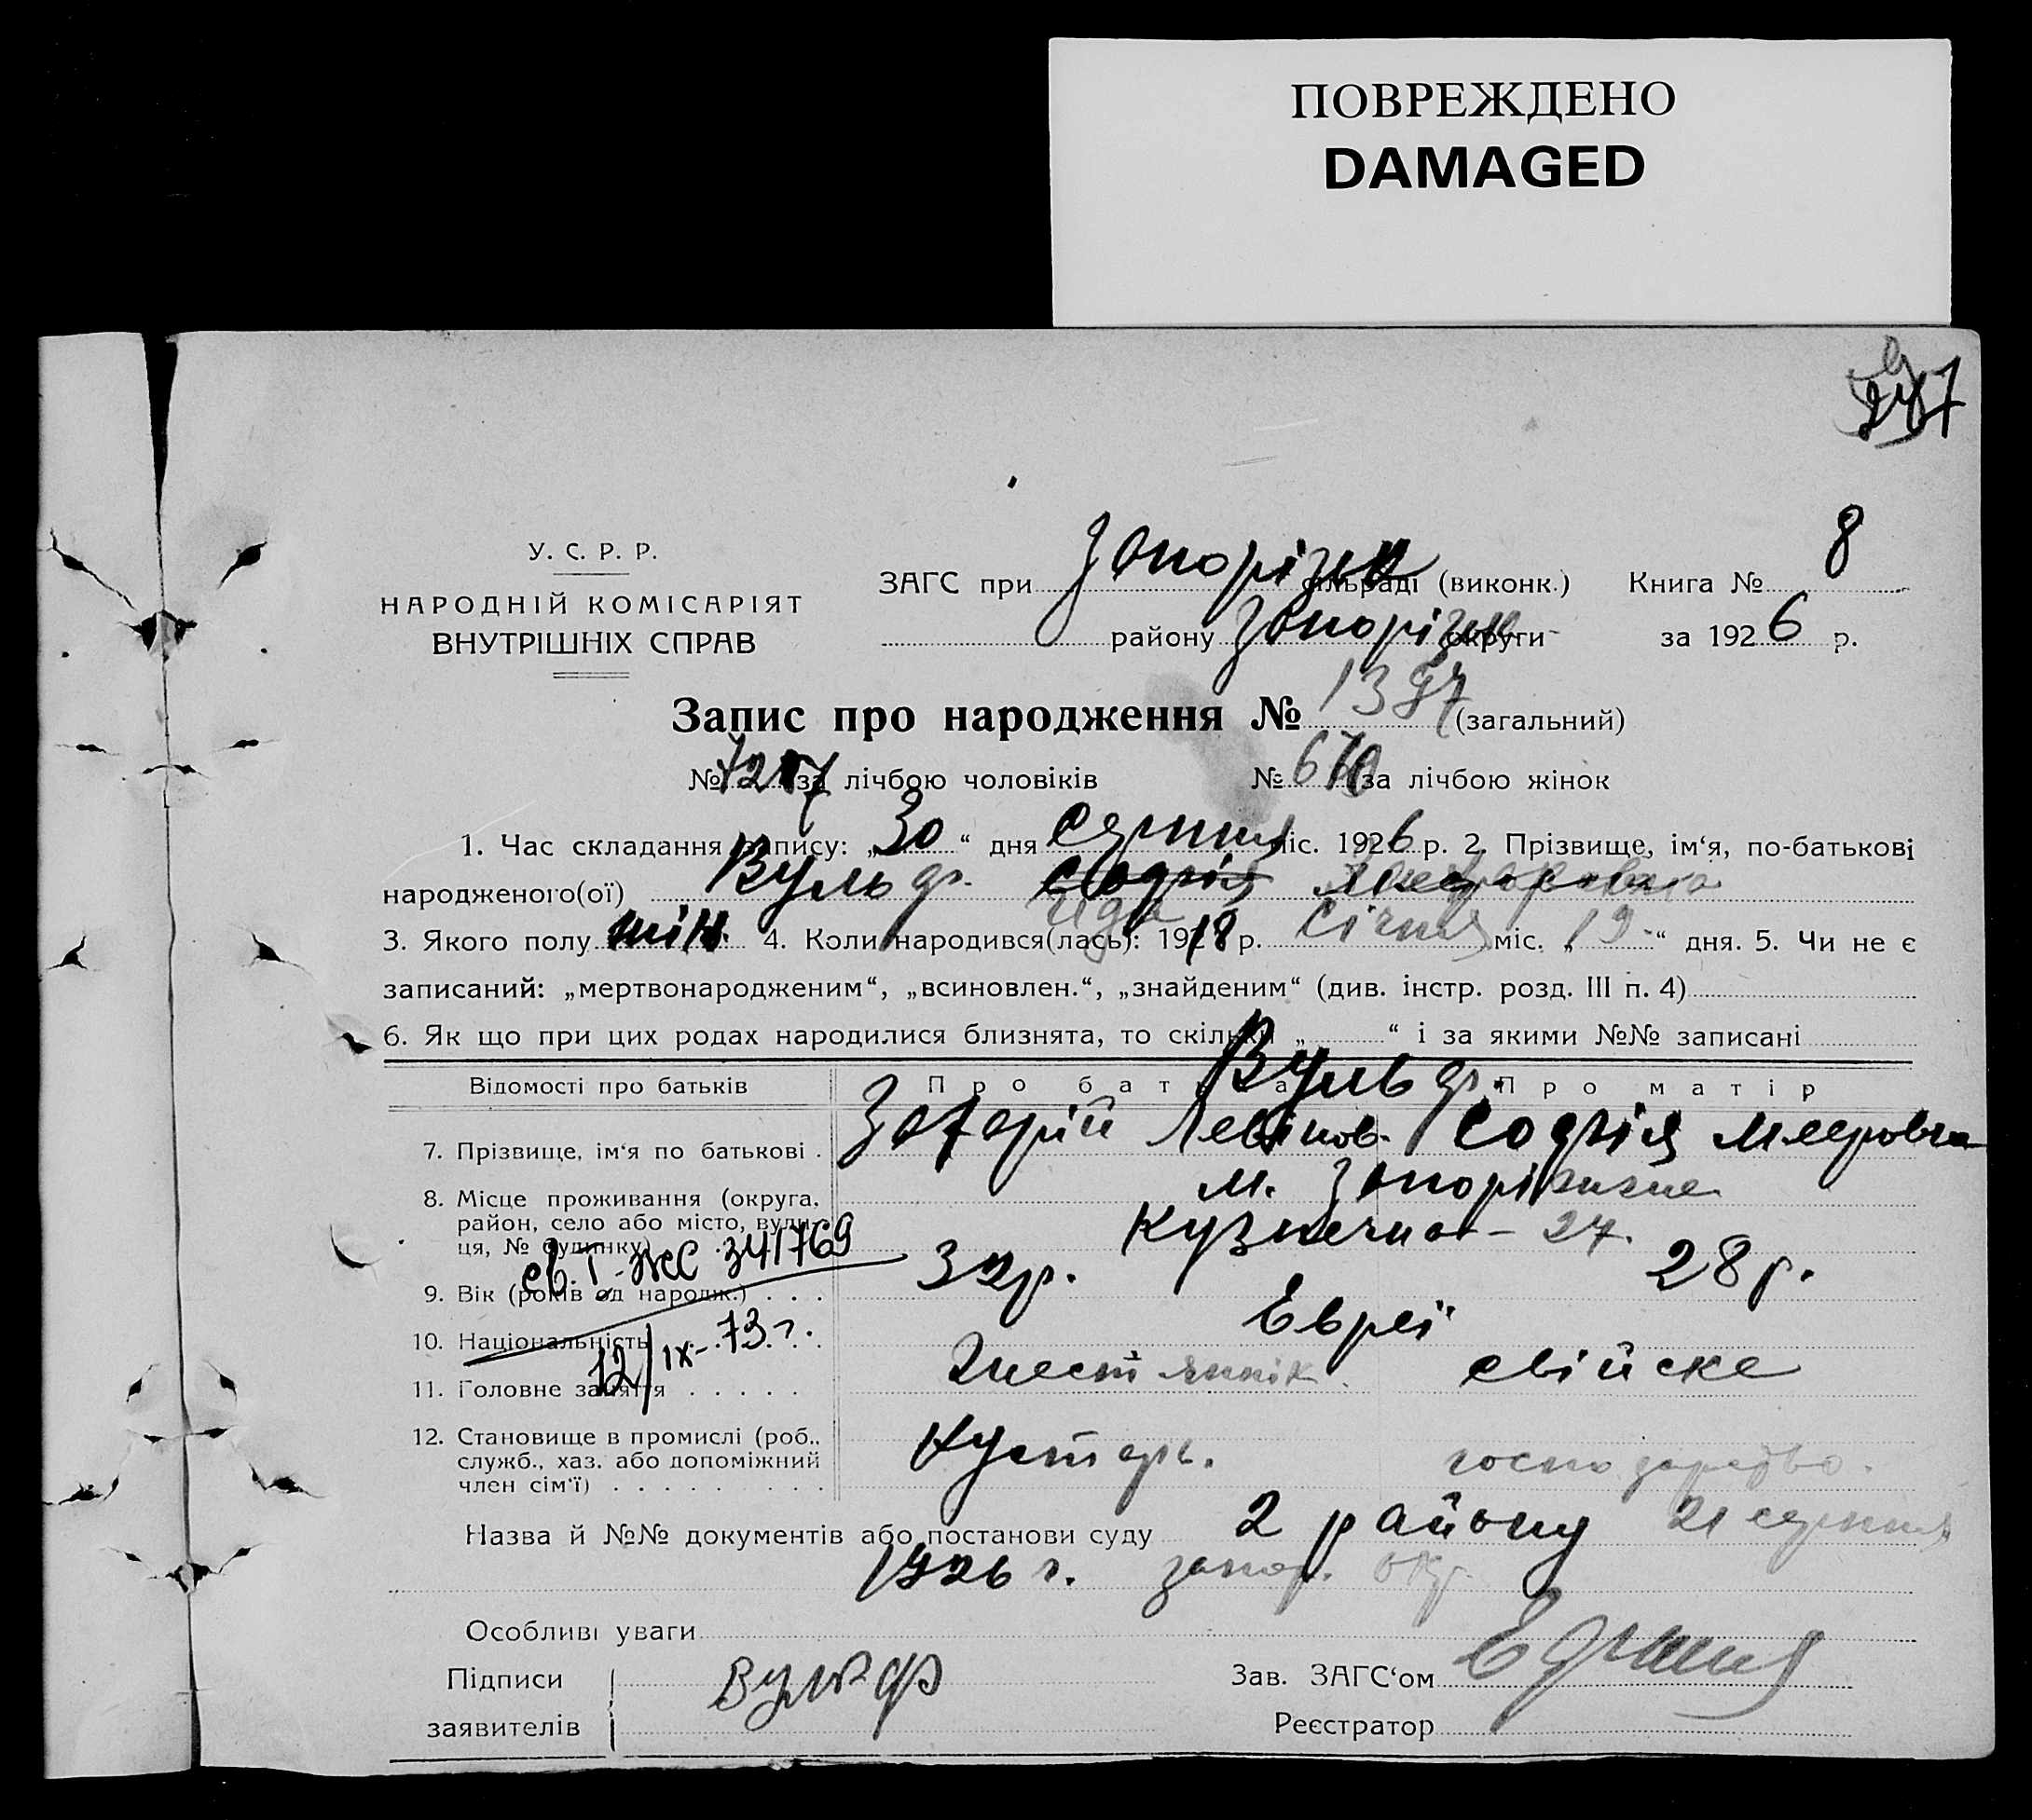 ПОВРЕЖДЕНО
DAMAGED
247
У. С. Р. Р.
НАРОДНІЙ КОМІСАРІЯТ
ВНУТРІШНІХ СПРАВ
ЗАГС при Запорізьк сільраді (виконк.) Книга № 8
району Запорізьк округи за 1926 р.
Запис про народження № 1387 (загальний)
№ за лічбою чоловіків № 670 за лічбою жінок
1. Час складання запису: „30“ дня серпня міс. 1926 р. 2. Прізвище, ім'я, по-батькові
народженого(ої) Вульф. Софія
Ида
3. Якого полу жін. 4. Коли народився(лась): 1918 р. Січня міс. „19“ дня. 5. Чи не є
записаний: „мертвонародженим“, „всиновлен.“, „знайденим“ (див. інстр. розд. III п. 4)
6. Як що при цих родах народилися близнята, то скільки „ “ і за якими №№ записані
Відомості про батьків Про батька Про матір
Вульф.
7. Прізвище, ім'я по батькові . Захарій Левінов. Софія Меєровна
8. Місце проживання (округа, район, село або місто, вули-ця, № будинку) м. Запоріжжне
Кузнечна - 27.
св. I-ЖС 341769
9. Вік (років од народж.) . . . 32р. 28 г.
10. Національність . . . Евреї
12/IX-73 г.
11. Головне заняття . . . . . Жестянник. свійске
12. Становище в промислі (роб., служб., хаз. або допоміжний член сім'ї) . . . . . . . . Кустарь. господарство.
Назва й №№ документів або постанови суду 2 району 21 серпня
1926 г. запор. окр.
Особливі уваги
Підписи Вульф Зав. ЗАГС'ом
заявителів Реєстратор